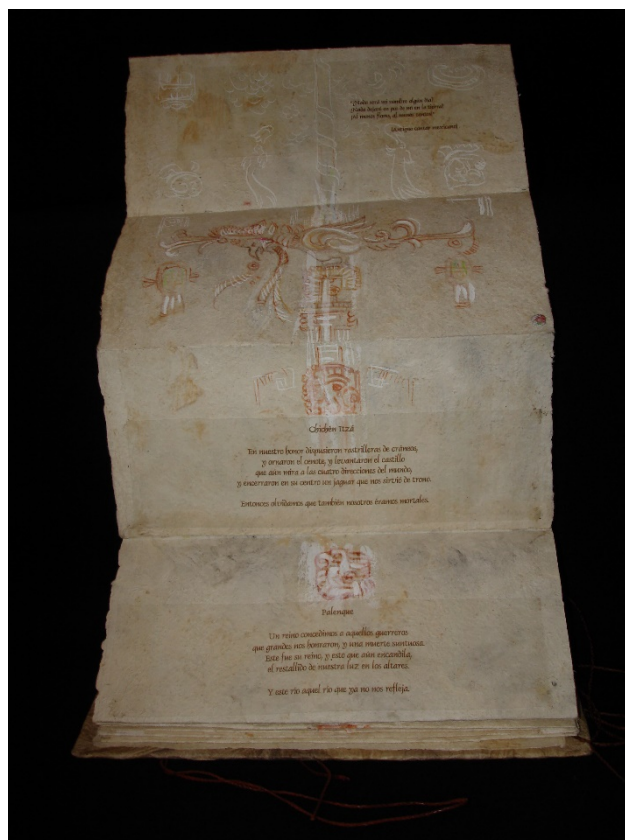 "¿Nada será mi nombre alguna vez?
¿Nada dejaré en pos de mí en la tierra?
¡Al menos flores, al menos cantos!"
(Antiguo cantar mexicano)
Chichén Itzá
En nuestro honor dispusieron rastrilleras de cráneos,
y ornaron el cenote, y levantaron el castillo
que aún mira a las cuatro direcciones del mundo,
y encerraron en su centro un jaguar que nos sirvió de trono.
Entonces olvidamos que también nosotros éramos mortales.
Palenque
Un reino concedimos a aquellos guerreros
que grandes nos honraron, y una muerte suntuosa.
Este fue su reino, y esto que aún encandila,
el restallido de nuestra luz en los altares.
Y este río aquel río que ya no nos refleja.